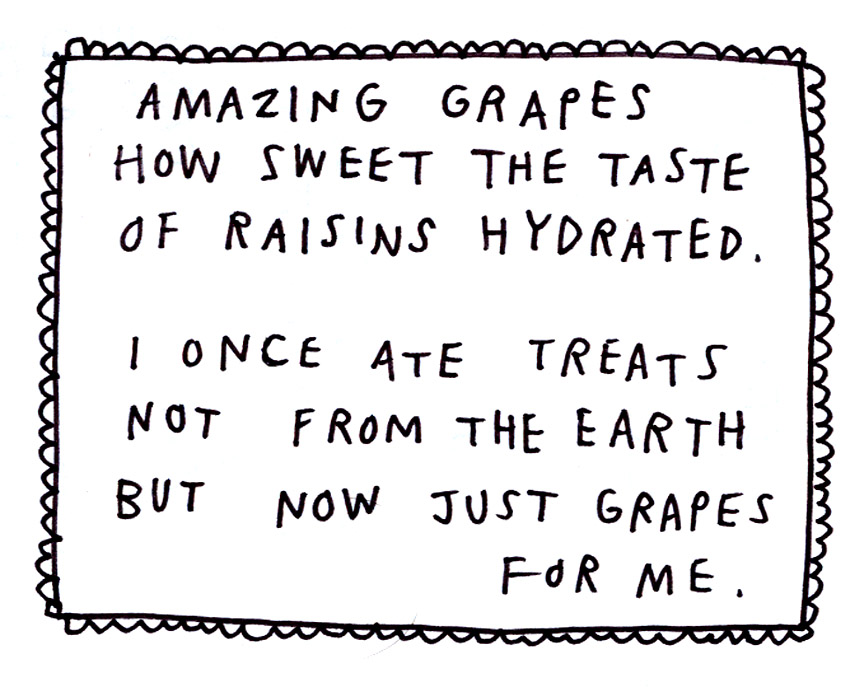 AMAZING GRAPES
HOW SWEET THE TASTE
OF RAISINS HYDRATED.
I ONCE ATE TREATS
NOT FROM THE EARTH
BUT NOW JUST GRAPES
FOR ME.